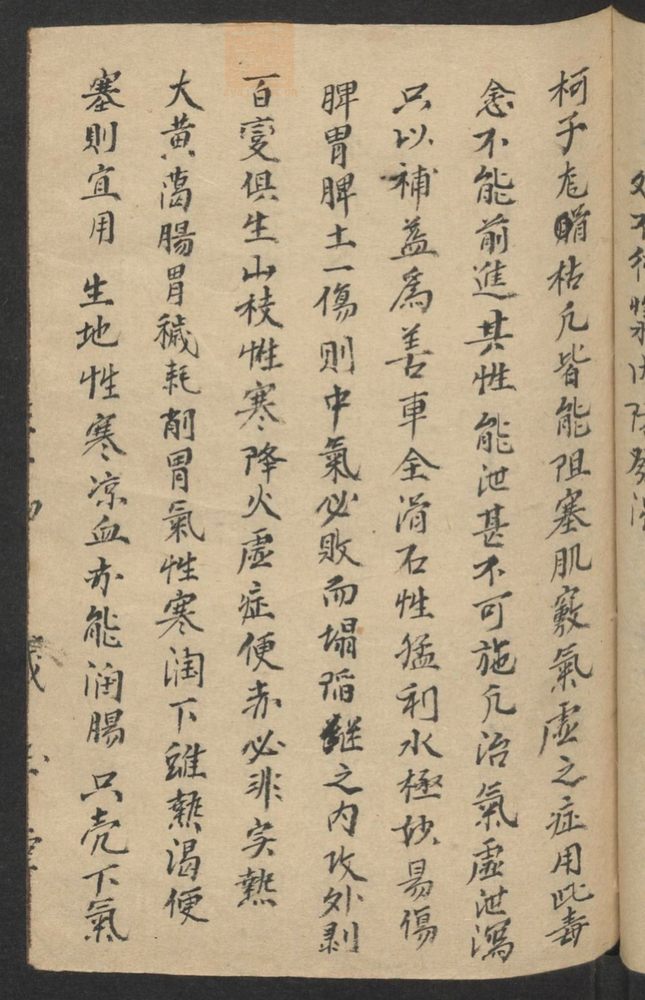 柯子尨睛枯凢皆能阻塞肌竅氣虛之症用此毒
念不能前進其性能泄甚不可施凢治氣虛泄瀉
只以補益爲善車全滑石性猛利水極妙易傷
脾胃脾土一傷則中氣必敗而塌陷繼之內攻外剥
百變俱生山枝性寒降火虛症便赤必非实熱
大黃蕩腸胃穢耗削胃氣性寒潤下雖熱渴便
塞則宜用 生地性寒凉血亦能润腸 只壳下氣